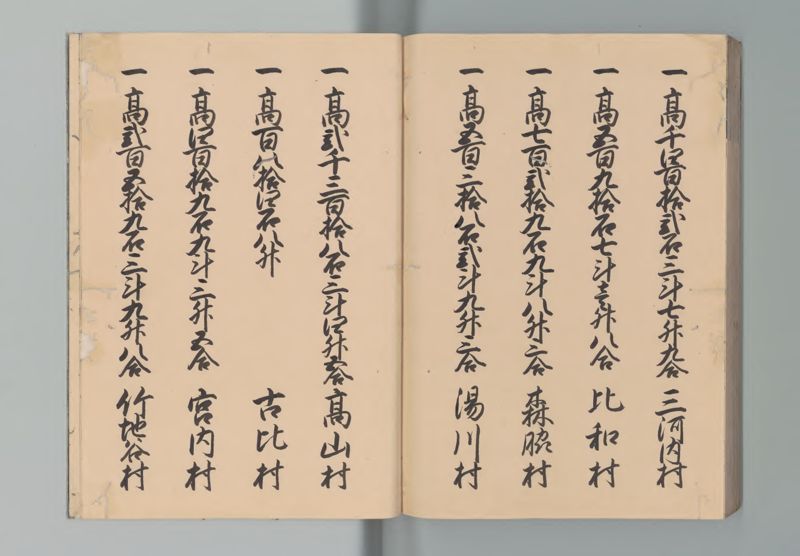 一 高千四百拾弐石三斗七升九合 三河内村
一 高五百九拾石七斗壱升八合 比和村
一 高七百弐拾九石九斗八升六合 森脇村
一 高五百三拾八石弐斗九升六合 湯川村
一 高弐千三百拾八石三斗四升五合 高山村
一 高百八拾四石八升 古比村
一 高四百拾九石九斗三升五合 宮内村
一 高弐百五拾九石三斗九升八合 竹地谷村